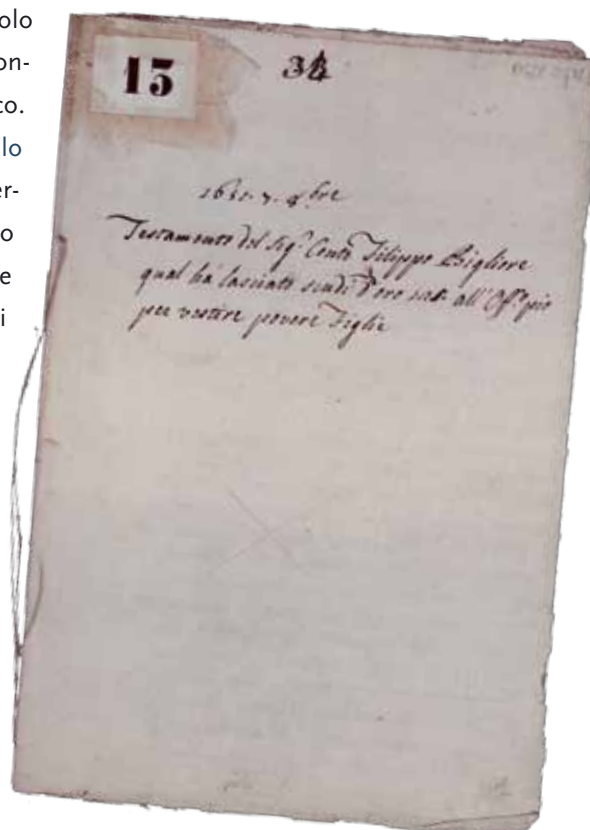 olo
on-
co.
lo
er-
o
e
i
15
34
1631. 7. 9bre
Testamento del Sig.r Conte Filippo Bigliore
qual ha lasciato scudi d'oro all'Off.o pio
per vestire povere Figlie